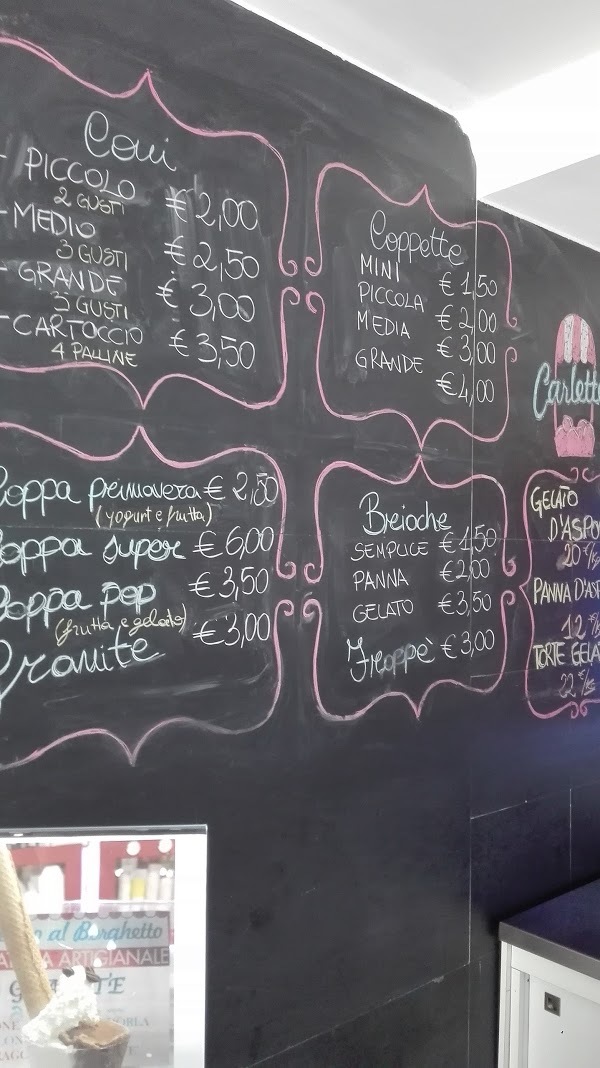 Coni
- PICCOLO € 2,00
2 GUSTI
- MEDIO € 2,50
3 GUSTI
- GRANDE € 3,00
3 GUSTI
- CARTOCCIO € 3,50
4 PALLINE
Coppette
MINI € 1,50
PICCOLA € 2,00
MEDIA € 3,00
GRANDE € 4,00
Coppa primavera € 2,50
(yogurt e frutta)
Coppa super € 6,00
Coppa pop € 3,50
(frutta e gelato)
Granite € 3,00
Breioche
SEMPLICE € 1,50
PANNA € 2,00
GELATO € 3,50
Frappè € 3,00
Carlett
GELATO
D'ASPO
20 €/kg
PANNA D'AS
12 €/k
TORTE GELA
22 €/kg
al Borghetto
ARTIGIANALE